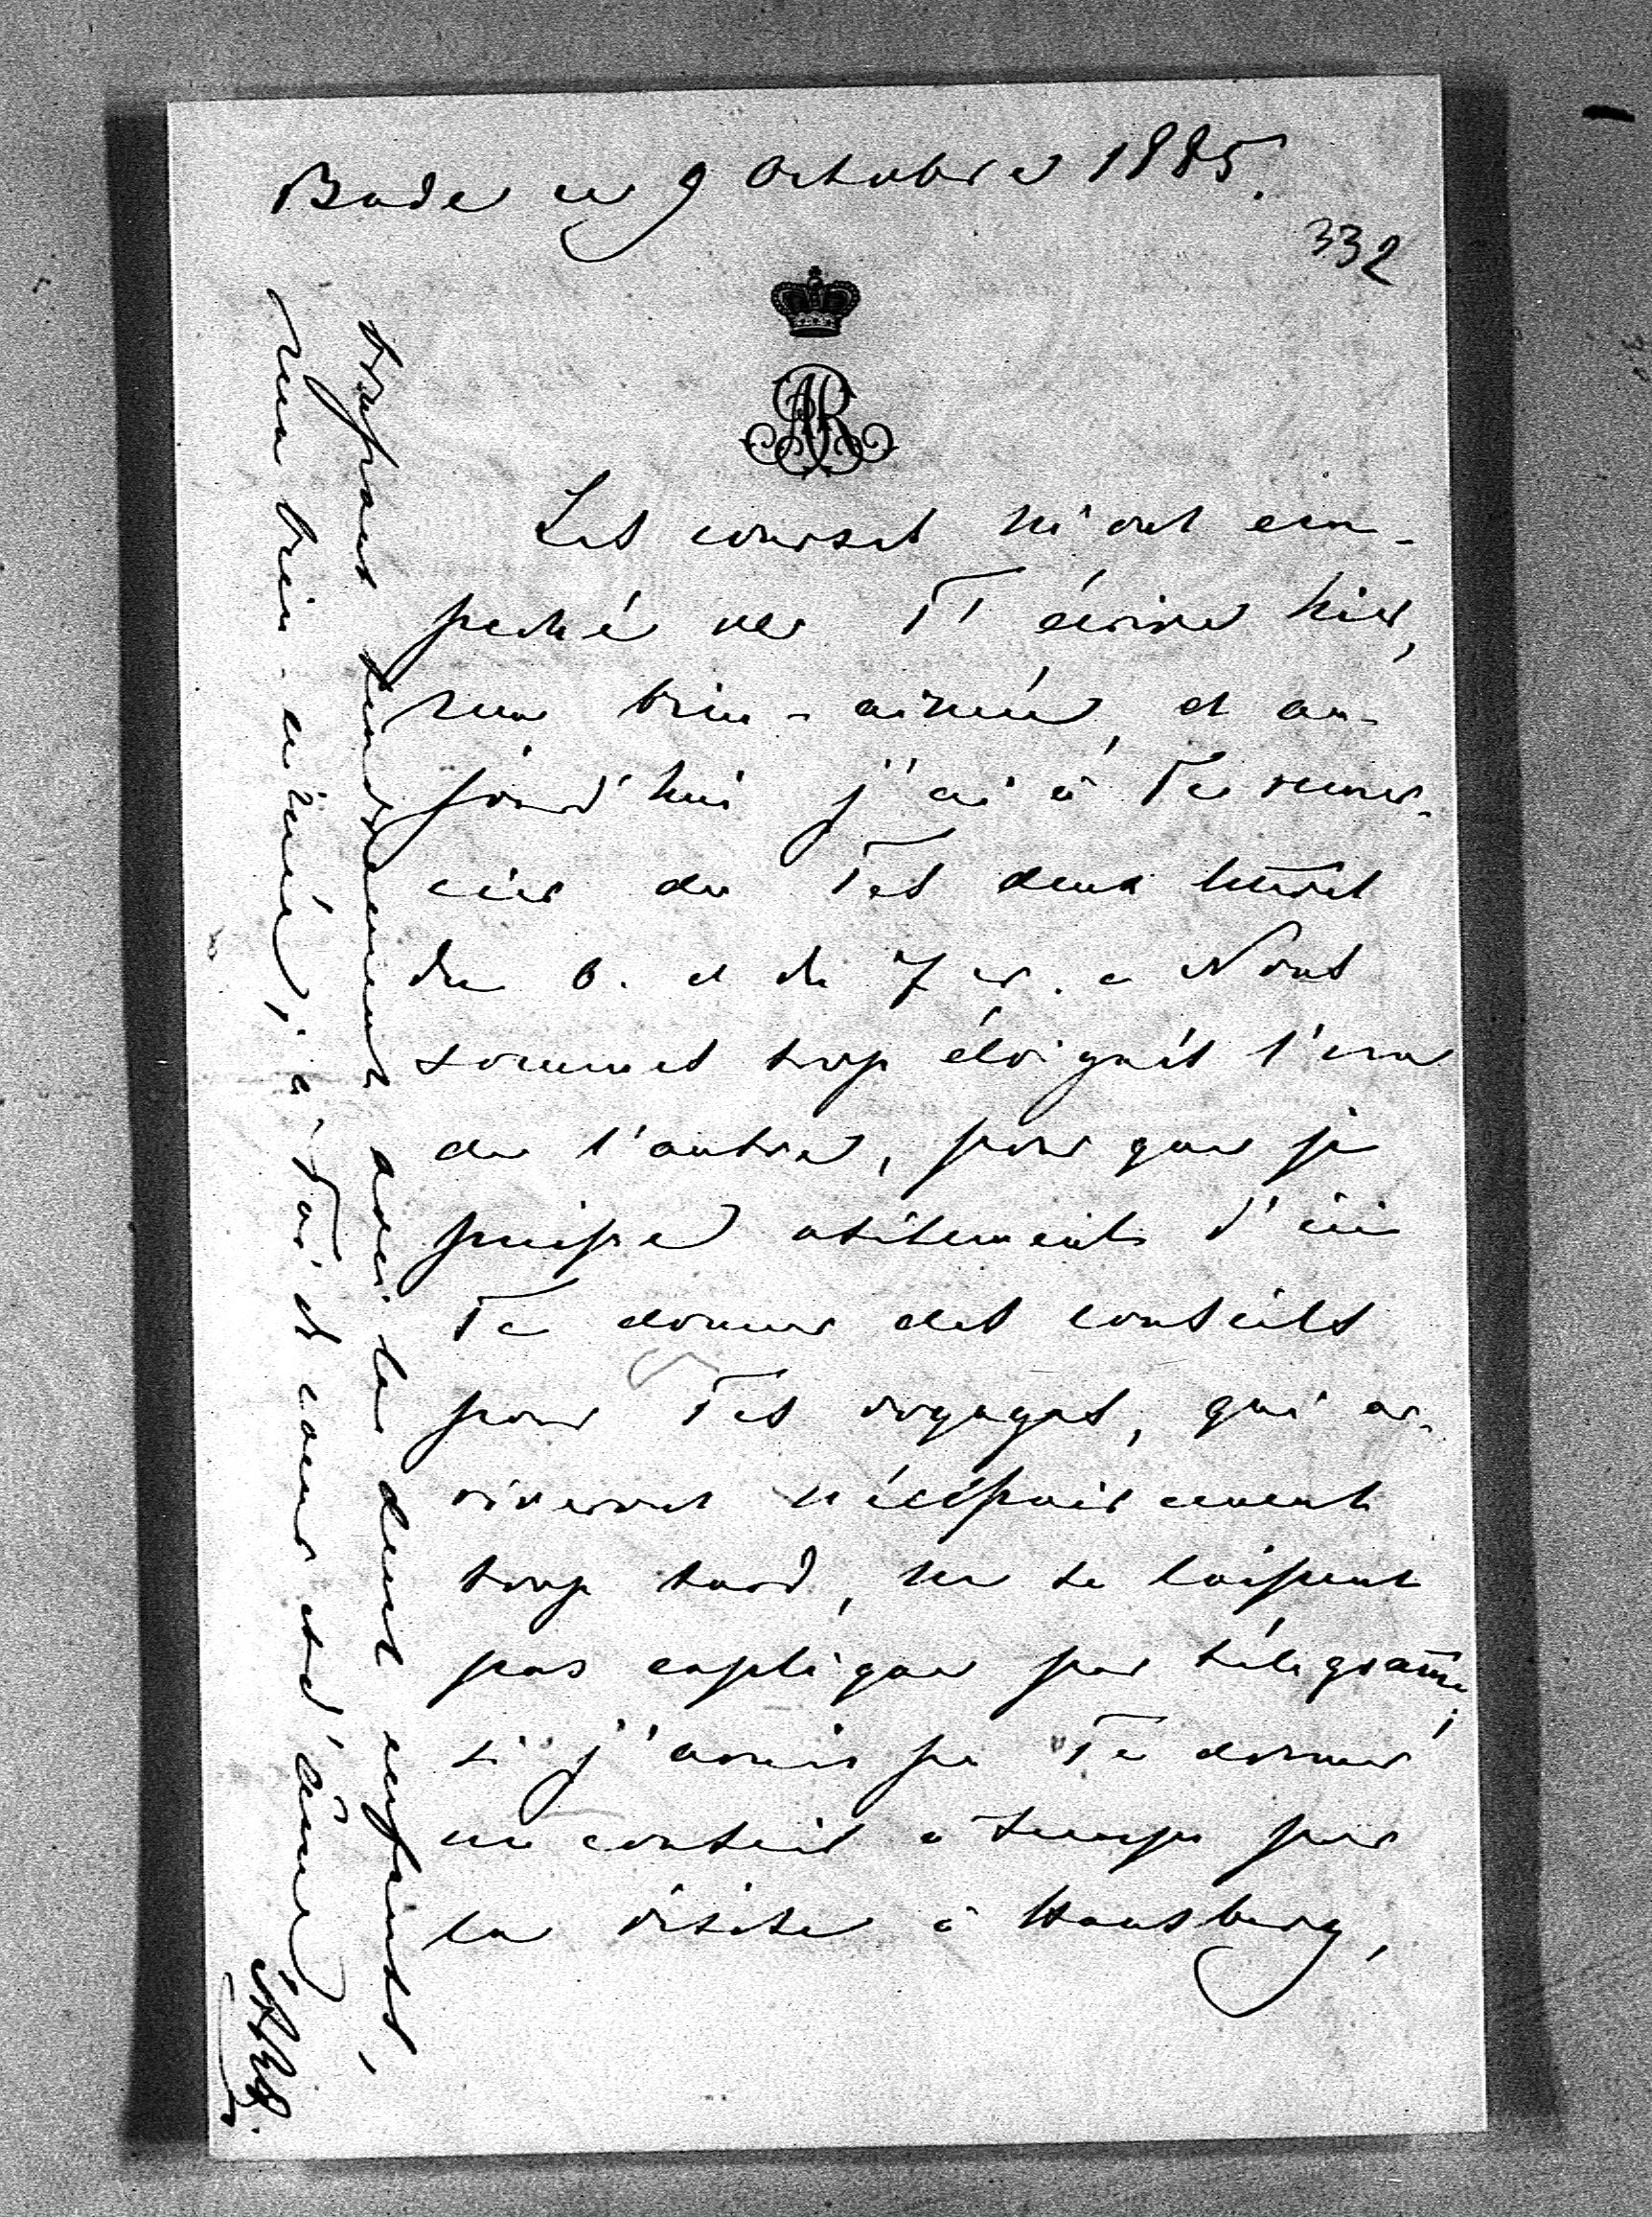 Bade ce 9 Octobre 1885.
332
AR
Les courses m'ont em-
peché de T'écrire hier,
ma bien-aimée, et au-
jourd'hui j'ai à Te remer-
cier de Tes deux lettres
du 6. et du 7 cr. Nous
sommes trop éloignés l'un
de l'autre, pour que je
puisse utilement d'ici
Te donner des conseils
pour Tes voyages, qui ar-
riveront nécessairement
trop tard, ne se laissent
pas expliquer par télégramme;
si j'avais pu Te donner
un conseil à temps pour
la visite à Hansberg,
embrassant tendrement avec les deux enfants,
ma bien-aimée, à Toi de coeur et d'âme